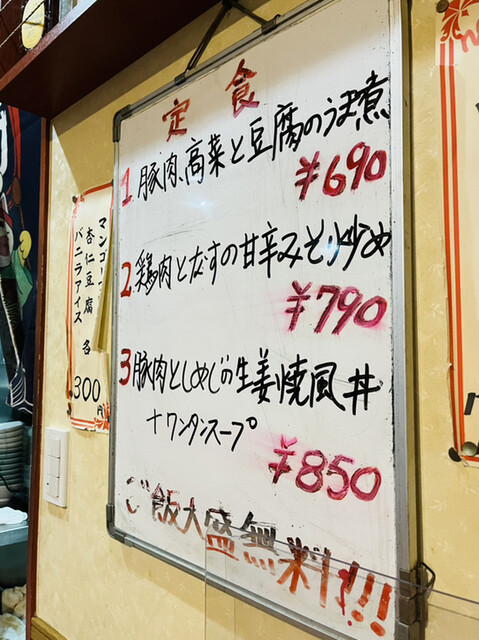 定食
1. 豚肉、高菜と豆腐のうま煮
¥690
2. 鶏肉となすの甘辛みそ炒め
¥790
3 豚肉としめじの生姜焼風丼
+ワンタンスープ
¥850
ご飯大盛無料!!!
杏仁豆腐
バニラアイス
各
300